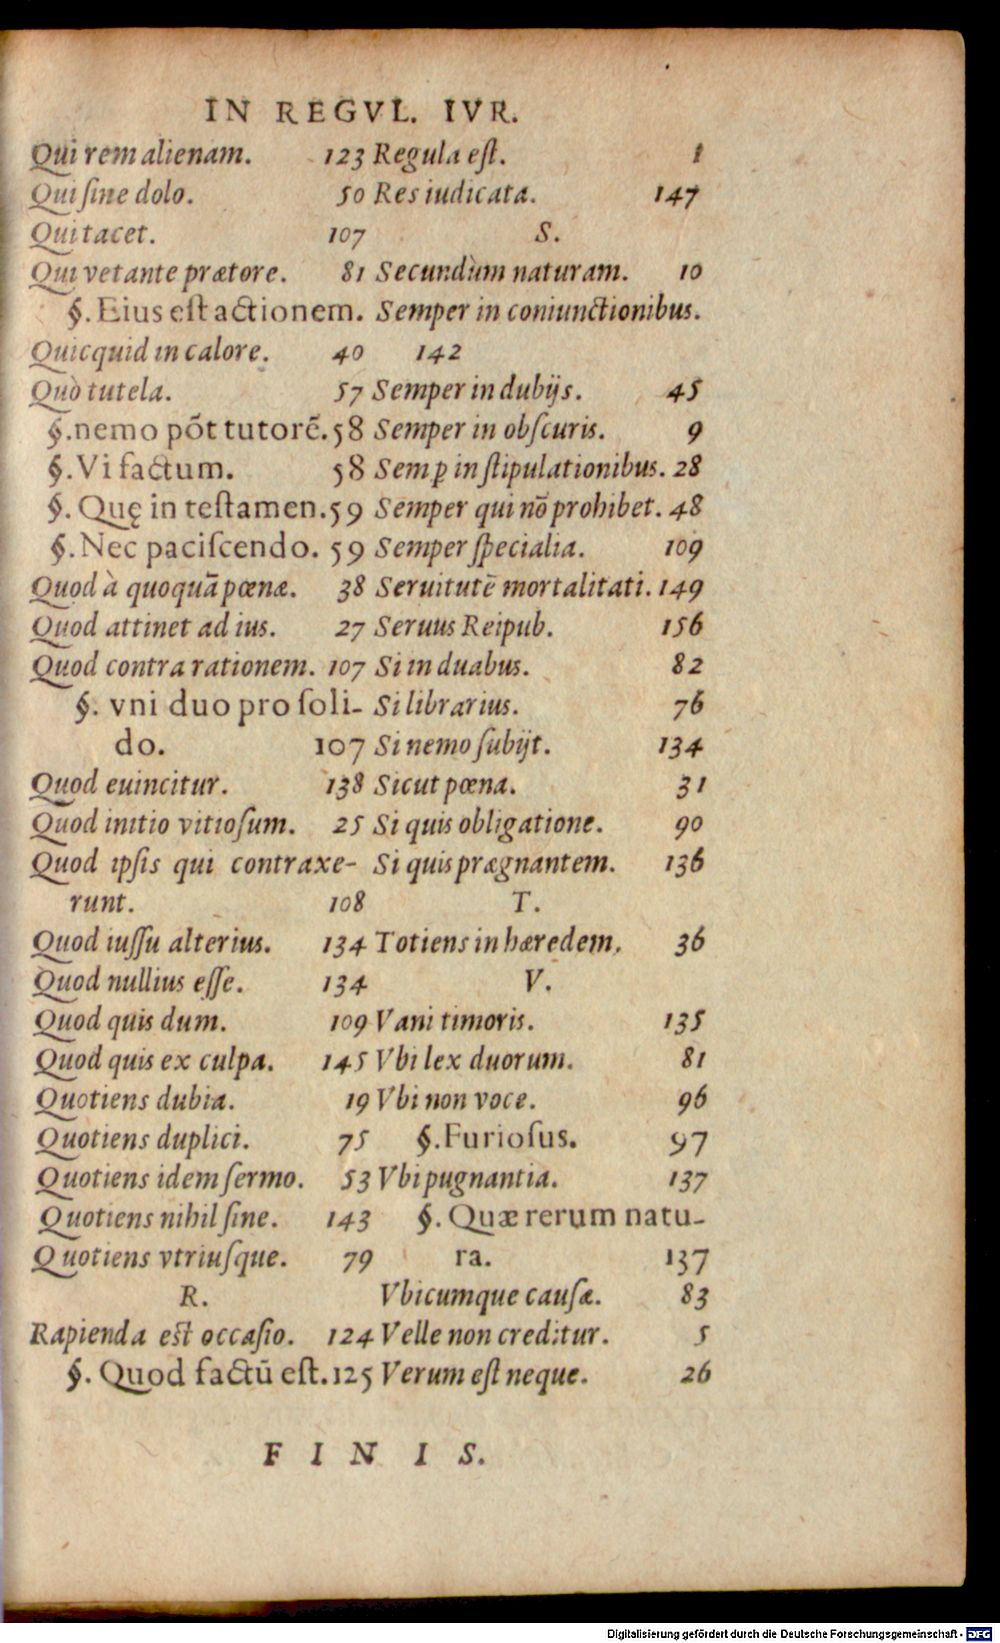 IN REGVL. IVR.
Qui rem alienam. 123
Qui ſine dolo. 50
Qui tacet. 107
Qui vetante prætore. 81
§. Eius eſt actionem.
Quicquid in calore. 40
Quò tutela. 57
§.nemo põt tutorẽ. 58
§. Vi factum. 58
§. Quę in teſtamen. 59
§. Nec paciſcendo. 59
Quod à quoquã pœnæ. 38
Quod attinet ad ius. 27
Quod contra rationem. 107
§. vni duo pro ſoli-
do. 107
Quod euincitur. 138
Quod initio vitioſum. 25
Quod ipſis qui contraxe-
runt. 108
Quod iuſſu alterius. 134
Quod nullius eſſe. 134
Quod quis dum. 109
Quod quis ex culpa. 145
Quotiens dubia. 19
Quotiens duplici. 75
Quotiens idem ſermo. 53
Quotiens nihil ſine. 143
Quotiens vtriuſque. 79
R.
Rapienda eſt occaſio. 124
§. Quod factū eſt. 125
Regula eſt. 1
Res iudicata. 147
S.
Secundùm naturam. 10
Semper in coniunctionibus.
142
Semper in dubijs. 45
Semper in obſcuris. 9
Semꝑ in ſtipulationibus. 28
Semper qui nõ prohibet. 48
Semper ſpecialia. 109
Seruitutẽ mortalitati. 149
Seruus Reipub. 156
Si in duabus. 82
Si librarius. 76
Si nemo ſubijt. 134
Sicut pœna. 31
Si quis obligatione. 90
Si quis prægnantem. 136
T.
Totiens in hæredem. 36
V.
Vani timoris. 135
Vbi lex duorum. 81
Vbi non voce. 96
§. Furioſus. 97
Vbi pugnantia. 137
§. Quæ rerum natu-
ra. 137
Vbicumque cauſæ. 83
Velle non creditur. 5
Verum eſt neque. 26
F I N I S.
Digitalisierung gefördert durch die Deutsche Forschungsgemeinschaft - DFG